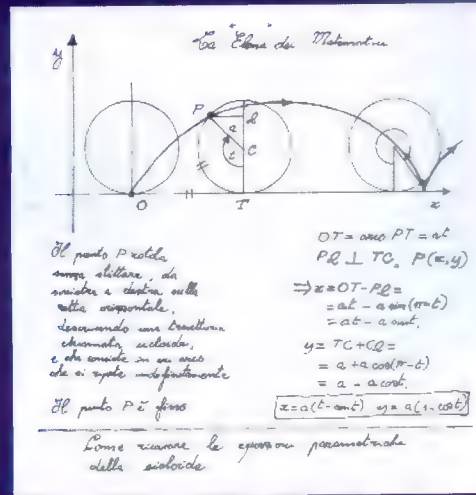 La "Elena" dei Matematici
y
P
Q
a
t
C
O
T
x
OT = arco PT = at
PQ ⊥ TC, P(x,y)
Il punto P rotola
senza slittare, da
sinistra a destra sulla
retta orizzontale,
descrivendo una traiettoria
chiamata cicloide,
e che consiste in un arco
che si ripete indefinitamente
Il punto P è fisso
⇒ x = OT - PQ =
= at - a sin(π-t)
= at - a sint.
y = TC + CQ =
= a + a cos(π-t)
= a - a cost.
x = a(t - sint) y = a(1 - cost)
Come ricavare le equazioni parametriche
della cicloide